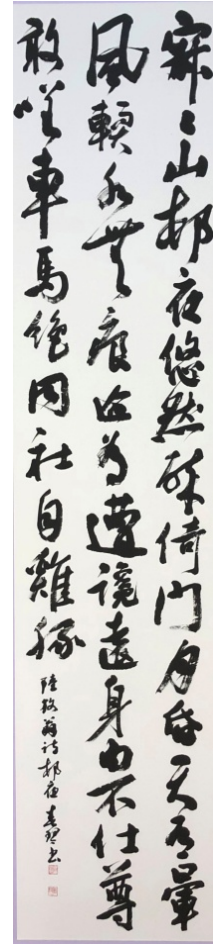 寂〻山邨夜悠然醉倚門月昏天有暈
風輭水無痕迹為遭讒遠身由不仕尊
敢嗟車馬絶同社自雞豚
陸放翁詩邨夜 書